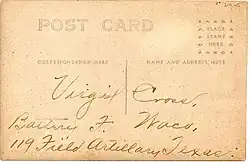 POST CARD
PLACE
STAMP
HERE
CORRESPONDENCE HERE
NAME AND ADDRESS HERE
Virgil Cross,
Battery F. Waco,
119 Field Artillary, Texas